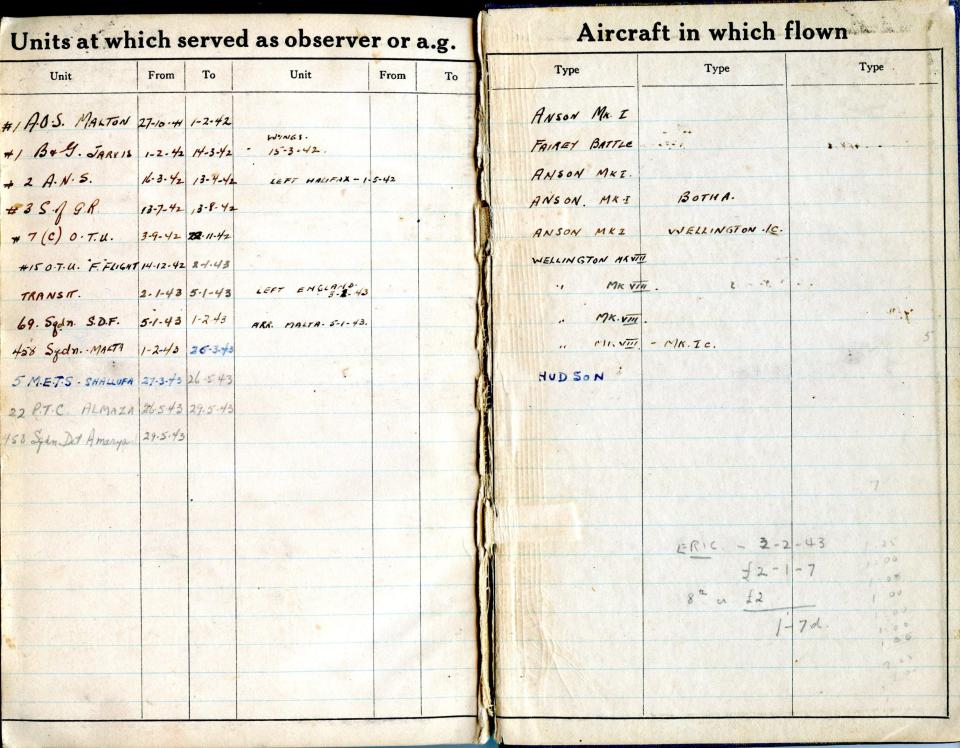 Units at which served as observer or a.g.
Unit From To Unit From To
#1 A.O.S. MALTON 27-10-41 1-2-42
#1 B&G. JARVIS 1-2-42 14-3-42 WINGS. 15-3-42.
#2 A.N.S. 16-3-42 13-4-42 LEFT HALIFAX - 1-5-42
#3 S of G.R. 13-7-42 13-8-42
#7 (C) O.T.U. 3-9-42 22-11-42
#15 O.T.U. "F. FLIGHT 14-12-42 2-1-43
TRANSIT. 2-1-43 5-1-43 LEFT ENGLAND. 3-1-43
69. Sqdn. S.D.F. 5-1-43 1-2-43 ARR. MALTA. 5-1-43.
458 Sqdn.-MALTA 1-2-43 26-3-43
5 M.E.T.S - SHALLUFA 27-3-43 26-5-43
22 P.T.C. ALMAZA 26-5-43 29.5.43
458 Sqdn. Det Amerya 29.5.43
Aircraft in which flown
Type Type Type
ANSON MK. I
FAIREY BATTLE
ANSON MK I.
ANSON. MK-I BOTHA.
ANSON MK I WELLINGTON .IC.
WELLINGTON MK VIII
" MK VIII.
" MK. VIII.
" MK. VIII - MK. Ic.
HUDSON
5
7
ERIC - 2-2-43
£2-1-7
8th £2
1-7d.